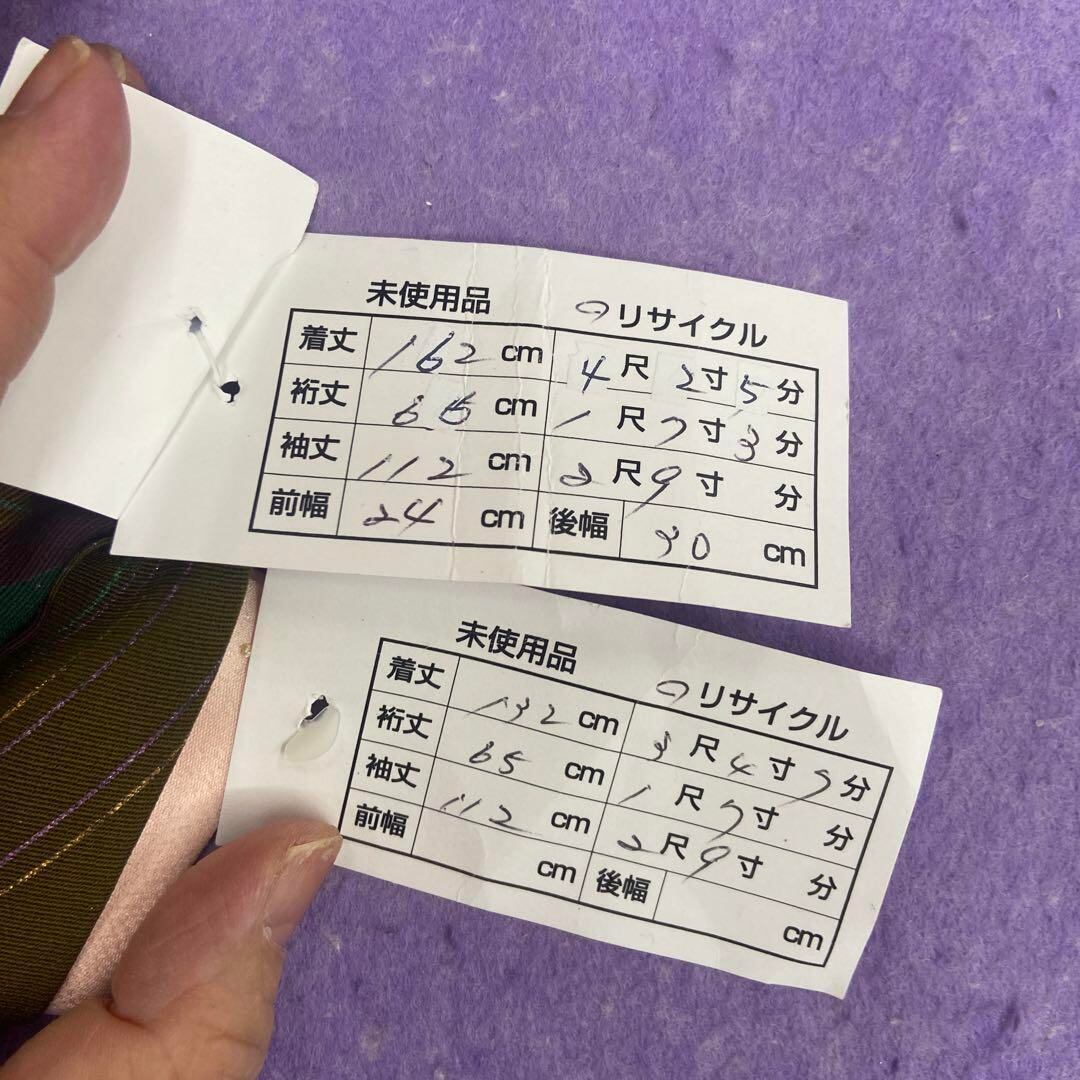 未使用品 リサイクル
着丈 162 cm 4尺 2寸 5分
裄丈 66 cm 1尺 7寸 3分
袖丈 112 cm 2尺 9寸 分
前幅 24 cm 後幅 30 cm
未使用品 リサイクル
着丈 132 cm 3尺 4寸 7分
裄丈 65 cm 1尺 7寸 分
袖丈 112 cm 2尺 9寸 分
前幅 cm 後幅 cm